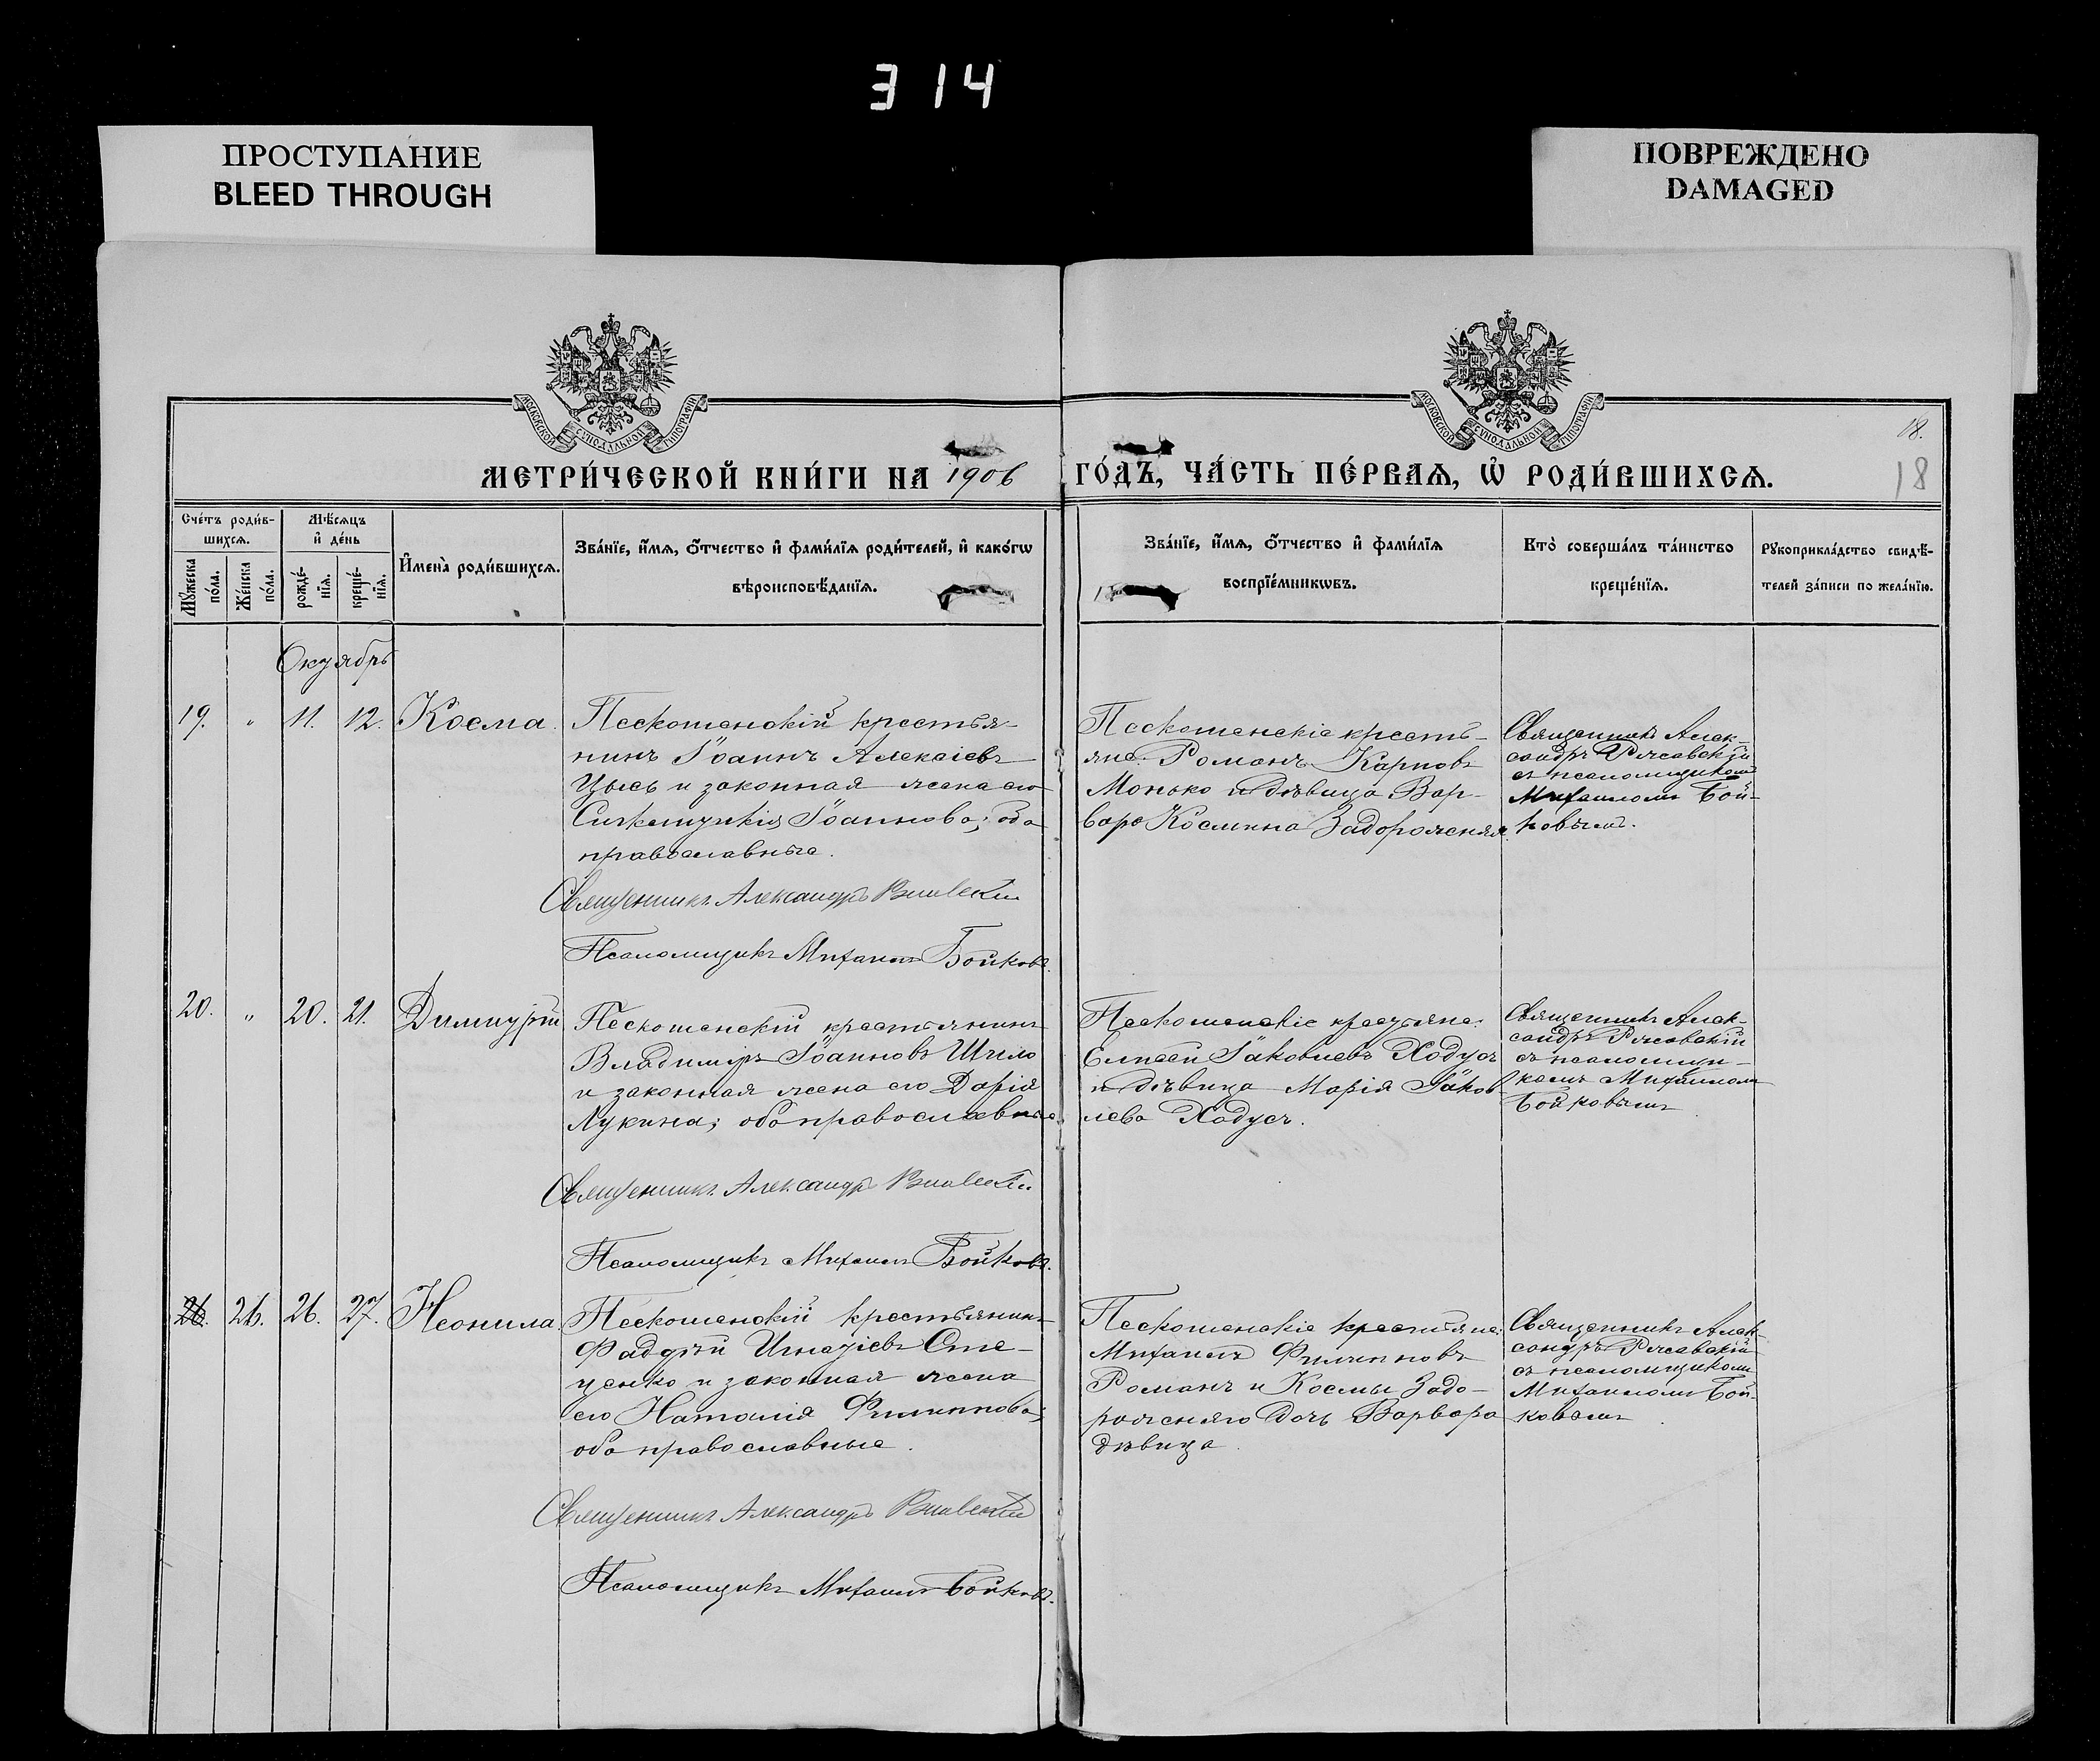 314
ПРОСТУПАНИЕ
BLEED THROUGH
ПОВРЕЖДЕНО
DAMAGED
МОСКОВСКОЙ СѴНОДАЛЬНОЙ ТИПОГРАФІИ
МОСКОВСКОЙ СѴНОДАЛЬНОЙ ТИПОГРАФІИ
18.
18
МЕТРИ́ЧЕСКОЙ КНИ́ГИ НА 1906 ГО́ДЪ, ЧА́СТЬ ПЕ́РВАѦ, Ѡ РОДИ́ВШИХСѦ.
Сче́тъ роди́в-
шихсѧ.
Мꙋ́жеска по́ла.
Же́нска по́ла.
Мѣ́сѧцъ
и҆ де́нь
рожде́-
нїѧ.
креще́-
нїѧ.
И҆мена̀ роди́вшихсѧ.
Зва́нїе, и҆́мѧ, ѻ҆́тчество и҆ фами́лїѧ роди́телей, и҆ како́гѡ
вѣроисповѣ́данїѧ.
Зва́нїе, и҆́мѧ, ѻ҆́тчество и҆ фами́лїѧ
воспрїе́мникѡвъ.
Кто̀ соверша́лъ та́инство
креще́нїѧ.
Рꙋкоприкла́дство свидѣ́-
телей за́писи по жела́нїю.
Октябрь
19. " 11. 12. Косма.
Пескошенскій крестья-
нинъ Іоаннъ Алексіевъ
Цысь и законная жена его
Іоаннова; оба
православные.
Священникъ Александръ
Псаломщикъ Михаилъ Бойковъ.
Пескошенскіе кресть-
яне: Романъ Карповъ
Монько и дѣвица Вар-
вара Космина Задорожняя.
Священникъ Алек-
сандръ
съ псаломщикомъ
Михаиломъ Бой-
ковымъ.
20. " 20. 21. Димитрій
Пескошенскій крестьянинъ
Владиміръ Іоанновъ Шило
и законная жена его Дарія
Лукина; оба православные
Священникъ Александръ
Псаломщикъ Михаилъ Бойковъ.
Пескошенскіе крестьяне:
Елисей Іаковлевъ Ходусъ
и дѣвица Марія Іаков-
лева Ходусъ.
Священникъ Алек-
сандръ
съ псаломщи-
комъ Михаиломъ
Бойковымъ
26. 26. 26. 27. Неонила.
Пескошенскій крестьянинъ
Фаддей Игнатіевъ Сте-
ценко и законная жена
его Наталія Филиппова;
оба православные.
Священникъ Александръ
Псаломщикъ Михаилъ Бойковъ.
Пескошенскіе крестьяне:
Михаилъ Филипповъ
Романъ и Космы Задо-
рожняго дочь Варвара
дѣвица.
Священникъ Алек-
сандръ
съ псаломщикомъ
Михаиломъ Бой-
ковымъ